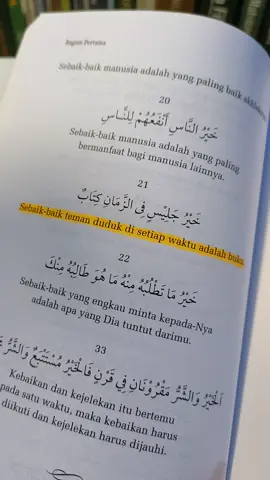 Bagian Pertama
Sebaik-baik manusia adalah yang paling baik
20
خَيْرُ النَّاسِ أَنْفَعُهُمْ لِلنَّاسِ
Sebaik-baik manusia adalah yang paling
bermanfaat bagi manusia lainnya.
21
خَيْرُ جَلِيْسٍ فِى الزَّمَانِ كِتَابٌ
Sebaik-baik teman duduk di setiap waktu adalah buku.
22
خَيْرُ مَا تَطْلُبُهُ مِنْهُ مَا هُوَ طَالِبُهُ مِنْكَ
Sebaik-baik yang engkau minta kepada-Nya
adalah apa yang Dia tuntut darimu.
33
اَلْخَيْرُ وَالشَّرُّ مَقْرُوْنَانِ فِي قَرْنٍ فَالْخَيْرُ مُسْتَتْبَعٌ وَالشَّرُّ
Kebaikan dan kejelekan itu bertemu
pada satu waktu, maka kebaikan harus
diikuti dan kejelekan harus dijauhi.